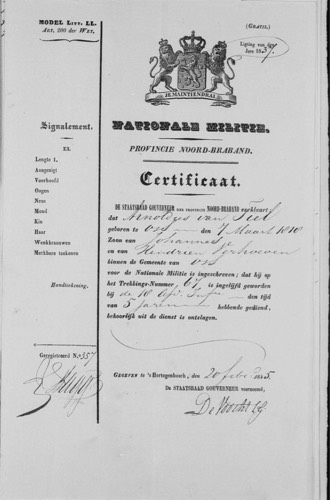 MODEL LITT. LL.
ART. 200 der WET.
(GRATIS.)
Ligting van den
Jare 18 7.
JE MAINTIENDRAI
NATIONALE MILITIE.
PROVINCIE NOORD-BRABAND.
Certificaat.
Signalement.
EL
Lengte 1.
Aangezigt
Voorhoofd
Oogen
Neus
Mond
Kin
Haar
Wenkbraauwen
Merkbare teekenen
Handteekening.
DE STAATSRAAD GOUVERNEUR DER PROVINCIE NOORD-BRABAND verklaart
dat Arnoldus van Tiel
geboren te Oss 7 Maart 1818
Zoon van Johannes
en Hendrien Verhoeven
binnen de Gemeente van Oss
voor de Nationale Militie is ingeschreven; dat hij op
het Trekkings-Nummer 67, is ingelijfd geworden
bij de 10 Afd. Inf. den tijd
van 5 jaren hebbende gediend,
behoorlijk uit de dienst is ontslagen.
Geregistreerd No. 357
GEGEVEN te 's Hertogenbosch, den 20 feb
DE STAATSRAAD GOUVERNEUR voornoemd,